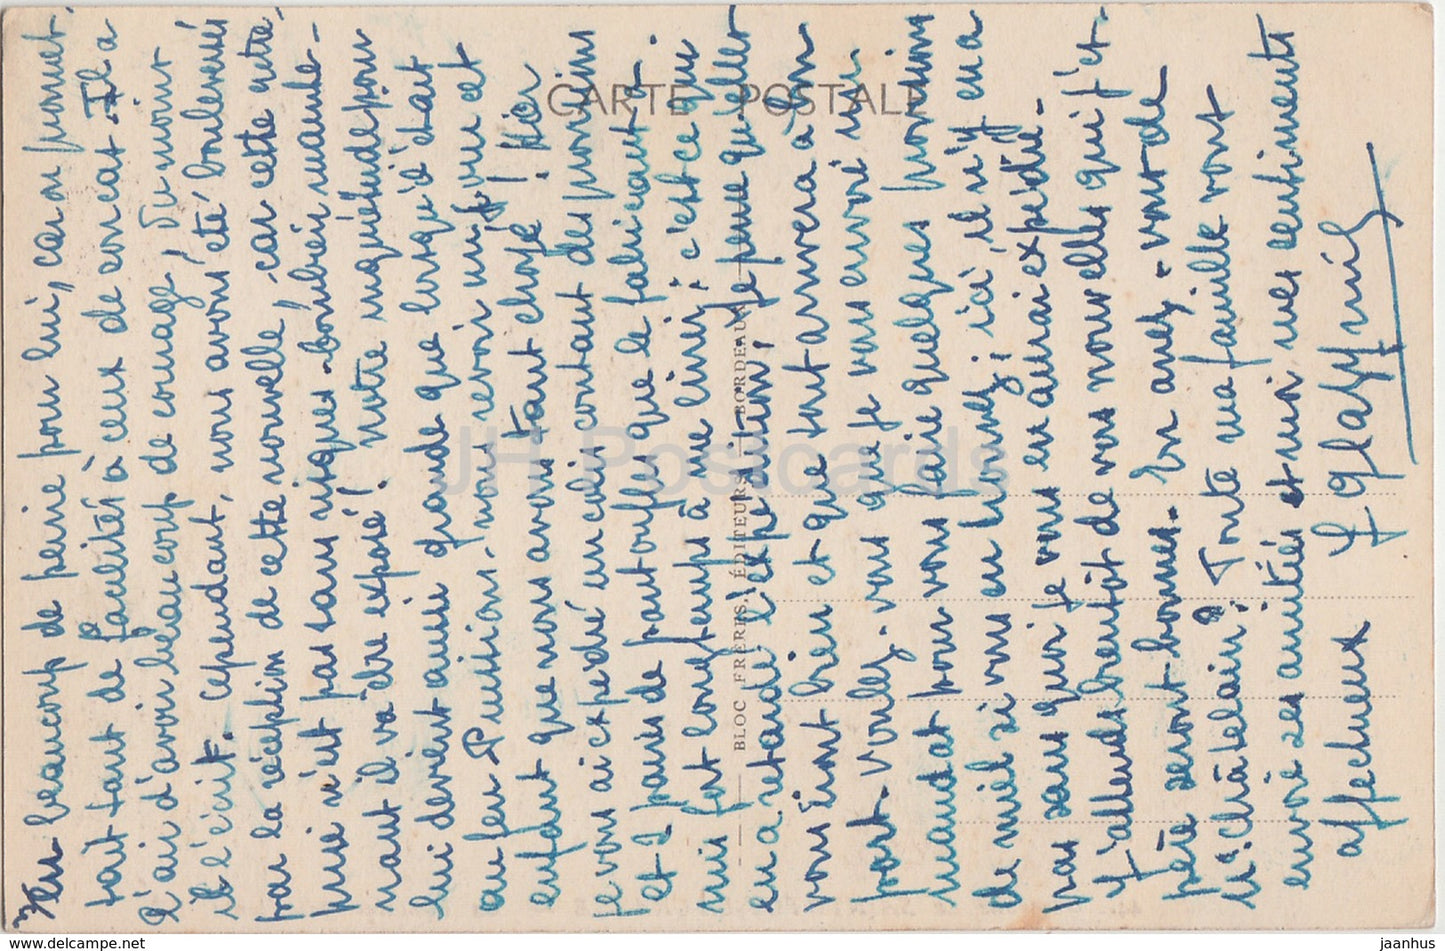 eu beaucoup de peine pour lui, car on promet-
tait tant de facilités à ceux de combat. Il a
l'air d'avoir beaucoup de courage, du moins
il l'écrit. Cependant, nous avons été bouleversés
par la réception de cette nouvelle, car cette entre-
prise n'est pas sans risques. bombes
il va être exposé! notre inquiétude pour
lui devient aussi grande que lorsqu'il était
au feu Puissions-nous revoir
enfant que nous avons tant choyé! Hier
je vous ai expédié un colis contenant des
et 2 paires de pantoufles que le fabricant a
mis fort longtemps à me livrer; c'est ce qui
en a retardé l'expédition; Je pense qu'elles
vous iront bien et que tout arrivera à bon
port. Voulez-vous que je vous envoie un
mandat pour vous faire quelques provisions
de miel si vous en trouvez; ici il n'y en a
pas sans quoi je vous en aurai expédié-
J'attends bientôt de vos nouvelles qui j'es-
père seront bonnes. En avez-vous de
Mr. Châtelain? Toute ma famille vous
envoie ses amitiés et moi mes sentiments
affectueux
CARTE POSTALE
BLOC FRÈRES, ÉDITEURS, BORDEAUX
JH Postcards
jaanhus @ www.delcampe.net